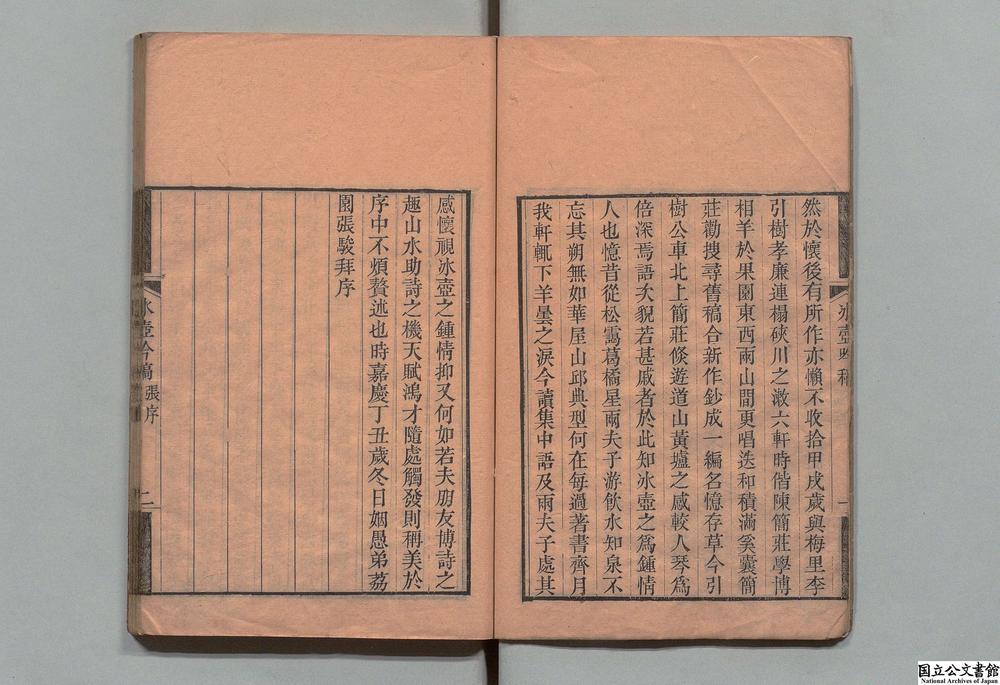 然於懷後有所作亦懶不收拾甲戌歲與梅里李
引樹孝廉連榻硤川之漱六軒時偕陳簡莊學博
相羊於果園東西兩山間更唱迭和積滿奚囊簡
莊勸搜尋舊稿合新作鈔成一編名憶存草今引
樹公車北上簡莊倐遊道山黃壚之感較人琴爲
倍深焉語次貌若甚戚者於此知冰壺之爲鍾情
人也憶昔從松靄葛橘星兩夫子游飲水知泉不
忘其朔無如華屋山邱典型何在每過著書齊月
我軒輒下羊曇之淚今讀集中語及兩夫子處其
感懷視冰壺之鍾情抑又何如若夫朋友博詩之
趣山水助詩之機天賦鴻才隨處觸發則稱美於
序中不煩贅述也時嘉慶丁丑歲冬日姻愚弟荔
園張駿拜序
冰壺吟稿 張序 二
国立公文書館
National Archives of Japan